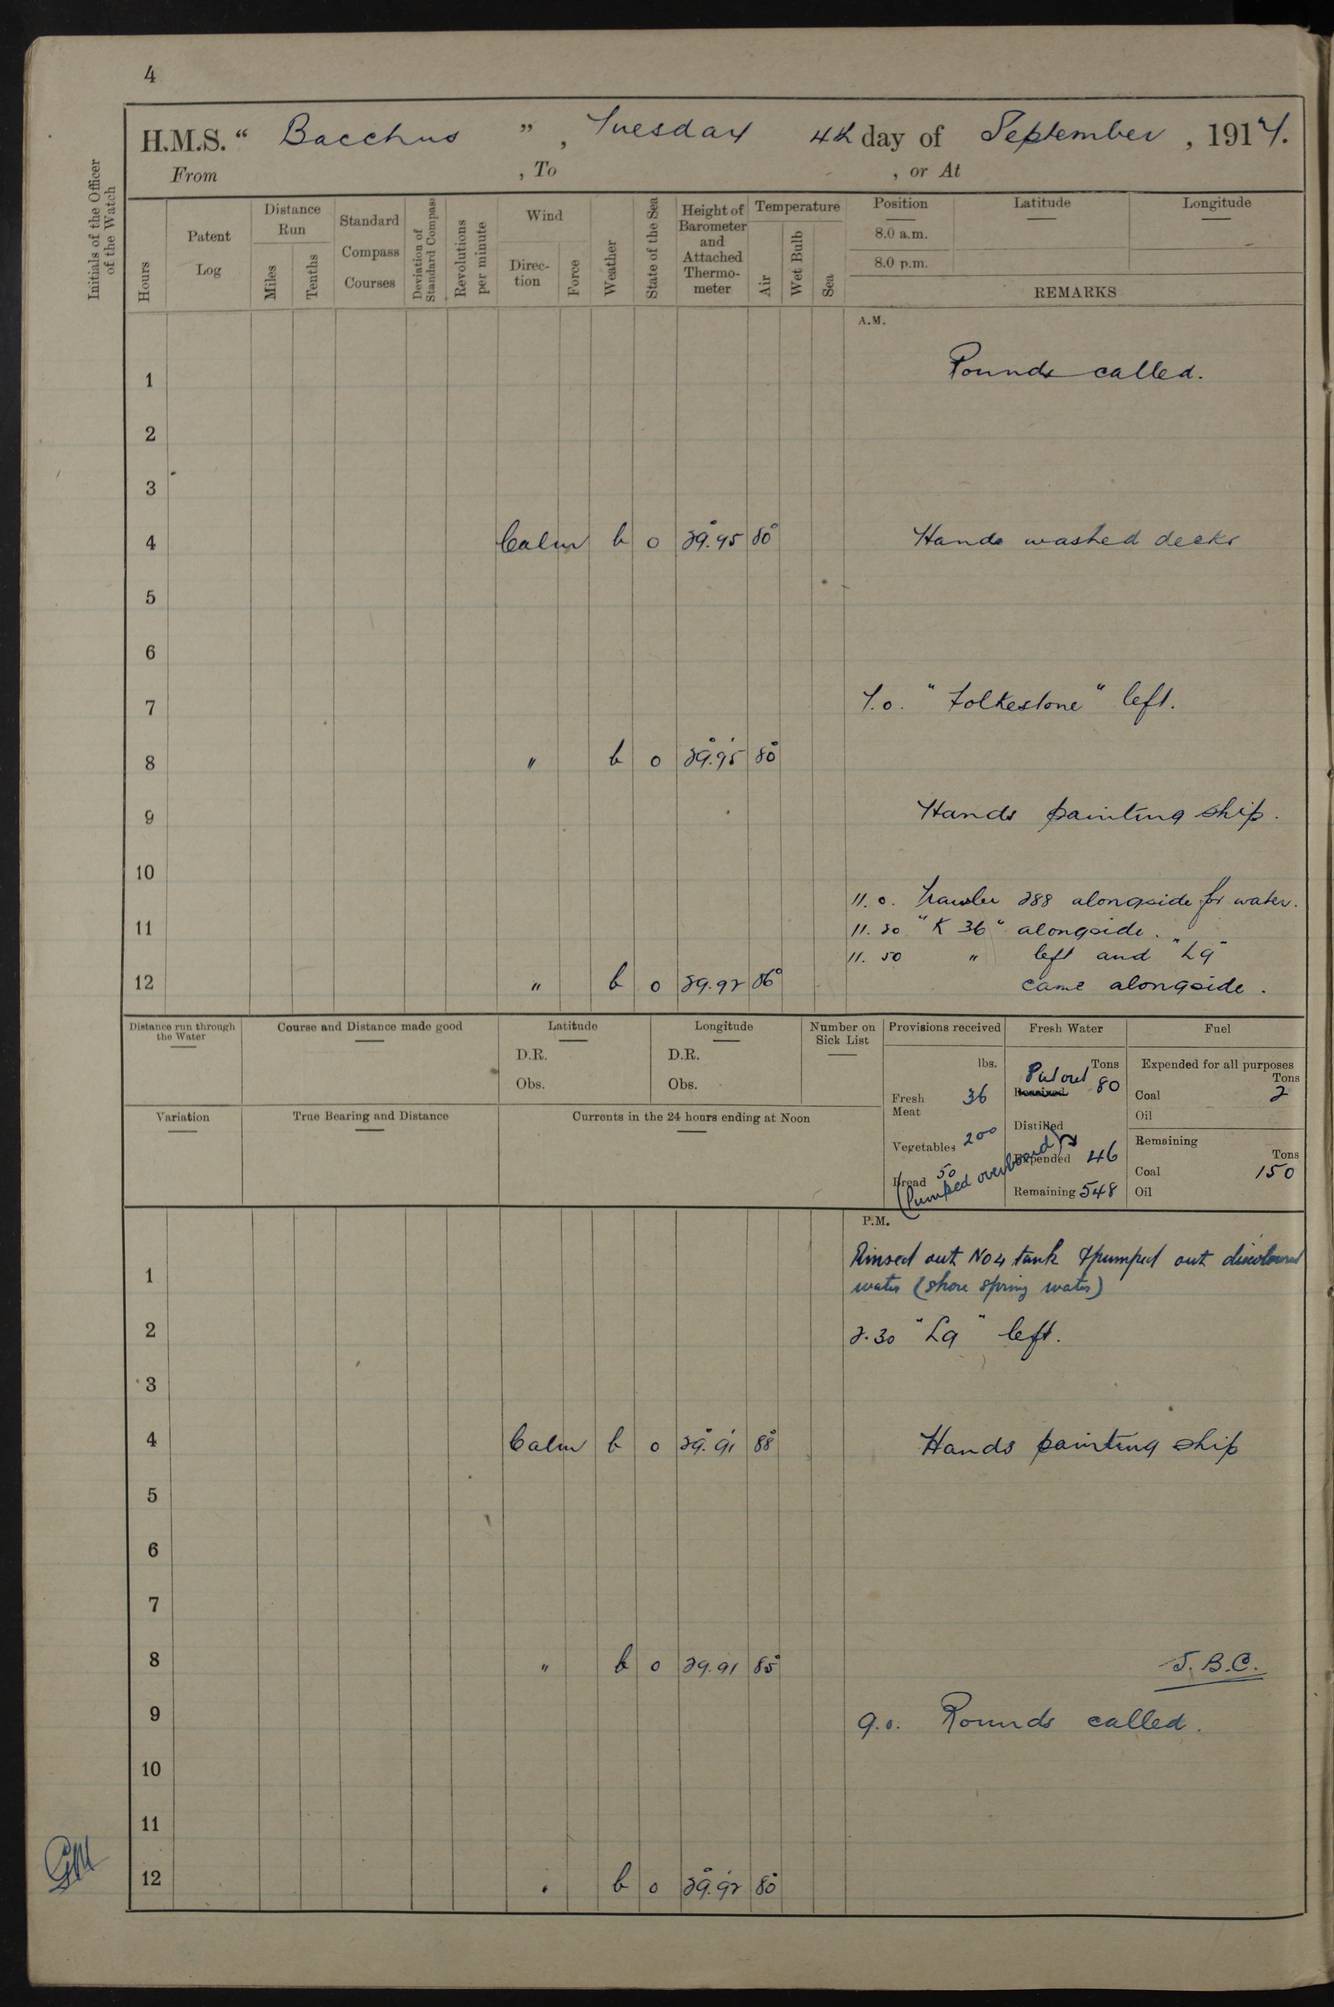 4
H.M.S. " Bacchus ", Tuesday 4th day of September, 1917.
From , To , or At
Initials of the Officer of the Watch
Hours
Patent Log
Distance Run
Miles
Tenths
Standard Compass Courses
Deviation of Standard Compass
Revolutions per minute
Wind
Direction
Force
Weather
State of the Sea
Height of Barometer and Attached Thermometer
Temperature
Air
Wet Bulb
Sea
Position Latitude Longitude
8.0 a.m.
8.0 p.m.
REMARKS
A.M.
1 Rounds called.
2
3
4 Calm b 0 29.95 80° Hands washed decks
5
6
7 7.0. "Folkestone" left.
8 " b 0 29.95 80°
9 Hands painting ship.
10
11.0. Trawler 288 alongside for water.
11 11.20 "K 36" alongside.
11.50 " left and "L9"
12 " b 0 29.92 86° came alongside.
Distance run through the Water
Course and Distance made good
Latitude
D.R.
Obs.
Longitude
D.R.
Obs.
Number on Sick List
Variation
True Bearing and Distance
Currents in the 24 hours ending at Noon
Provisions received
lbs.
Fresh Meat 36
Vegetables 200
Bread 50
(Pumped overboard)
Fresh Water
Tons
Put out 80
Received
Distilled
Expended 46
Remaining 548
Fuel
Expended for all purposes
Tons
Coal 2
Oil
Remaining
Tons
Coal 150
Oil
P.M.
Rinsed out No 4 tank & pumped out discoloured
1 water (shore spring water)
2 2.30 "L9" left.
3
4 Calm b 0 29.91 88° Hands painting ship
5
6
7
8 " b 0 29.91 85° J.B.C.
9 9.0. Rounds called.
10
11
12 " b 0 29.92 80°
GM